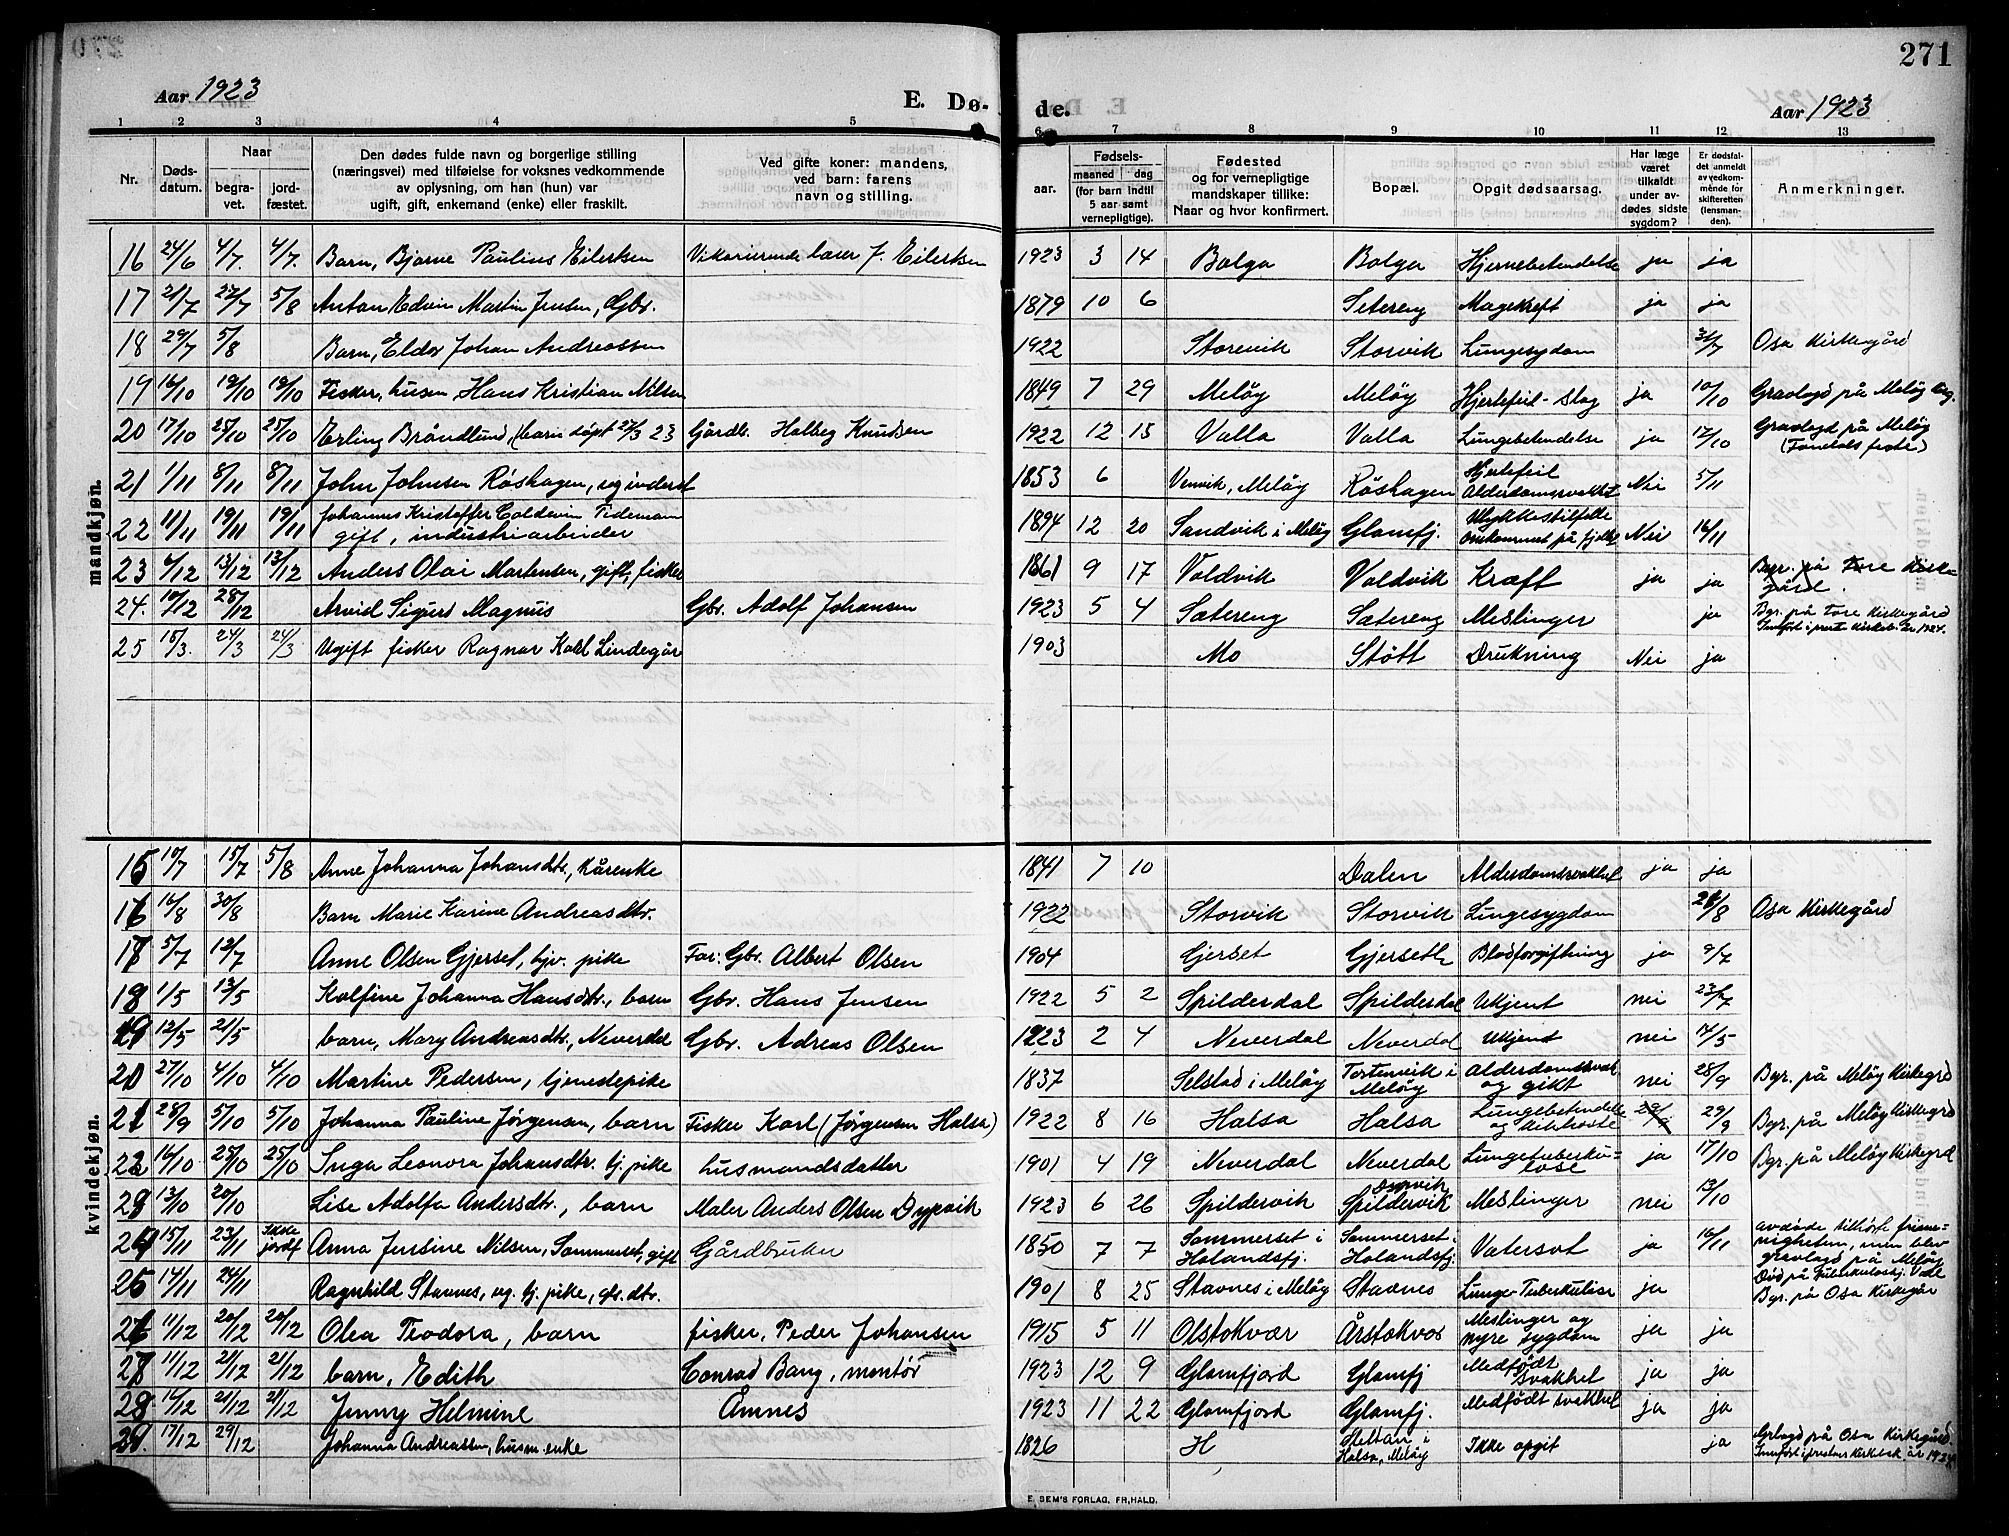 271
Aar 1923
E. Dø-
de.
Aar 1923
1 2 3 4 5 6 7 8 9 10 11 12 13
Nr.
Døds-
datum.
Naar
begra-
vet.
jord-
fæstet.
Den dødes fulde navn og borgerlige stilling
(næringsvei) med tilføielse for voksnes vedkommende
av oplysning, om han (hun) var
ugift, gift, enkemand (enke) eller fraskilt.
Ved gifte koner: mandens,
ved barn: farens
navn og stilling.
Fødsels-
aar.
maaned dag
(for barn indtil
5 aar samt
vernepligtige).
Fødested
og for vernepligtige
mandskaper tillike:
Naar og hvor konfirmert.
Bopæl.
Opgit dødsaarsag.
Har læge
været
tilkaldt
under av-
dødes sidste
sygdom?
Er dødsfal-
det anmeldt
av vedkom-
mende for
skifteretten
(lensman-
den).
Anmerkninger.
mandkjøn.
16 24/6 4/7. 4/7. Barn, Bjarne Paulius Eilertsen Vikarierende lærer J. Eilertsen 1923 3 14 Bolga Bolga Hjernebetendelse ja ja
17 21/7 27/7 5/8 Anton Edvin Martin Jensen, Gbr. 1879 10 6 Setereng Magekreft ja ja
18 29/7 5/8 Barn, Eldor Johan Andreassen 1922 Storevik Storvik Lungesygdom 31/7 Osa Kirkegård
19 16/10 19/10 19/10 Fisker, husm Hans Kristian Nilsen 1849 7 29 Meløy Meløy Hjertefeil - slag ja 10/10 Gravlagd på Meløy
20 17/10 25/10 25/10 Erling Bråndlund, (barn døpt 27/3 23 Gårdb. Halbeg Knudsen 1922 12 15 Valla Valla Lungebetendelse ja 17/10 Gravlagd på Meløy
21 1/11 8/11 8/11 John Johnsen Røshagen, ugift inderst 1853 6 Venvik, Meløy Røshagen Hjertefeil
Alderdomssvakhet Nei 5/11
22 11/11 19/11 19/11 Johannes Kristoffer Coldevin Tidemann
gift, industriarbeider 1894 12 20 Sandvik i Meløy Glomfj. Ulykkestilfelle
Omkommet på fjellet Nei 16/11
23 4/12 13/12 13/12 Anders Olai Martensen, gift, fisker 1861 9 17 Valdvik Valdvik Kræft ja ja Bgr. på Fore Kirke-
gård.
24. 10/12 28/12 Arvid Sigurd Magnus Gbr. Adolf Johansen 1923 5 4 Sætereng Sætereng Meslinger ja Bgr. på Fore Kirkegård
Innført i prest. Kirkeb. år 1924.
25 15/3. 24/3 24/3 Ugift fisker Ragnar Karl Lindegår 1903 Mo Støtt Drukning Nei ja
kvindekjøn.
15 10/7 15/7 5/8 Anne Johanna Johansdtr., kårenke 1841 7 10 Dalen Alderdomssvakhet ja ja
16 16/8 30/8 Barn Marie Karine Andreasdtr. 1922 Storvik Storvik Lungesygdom 28/8 Osa Kirkegård
17 5/7 12/7 Anne Olsen Gjerset, hjv. pike Far: Gbr. Albert Olsen 1904 Gjerset Gjerseth Blodforgiftning ja 9/7
18 1/5 13/5 Kolfine Johanna Hansdtr., barn Gbr. Hans Jensen 1922 5 2 Spilderdal Spilderdal Ukjent nei 23/7
19 12/5 21/5 barn, Mary Andreasdtr., Neverdal Gbr. Adreas Olsen 1923 2 4 Neverdal Neverdal Ukjent nei 14/5
20 27/10 4/10 4/10 Martine Pedersen, tjenestepike 1837 Selstad i Meløy Tortenvik i
Meløy Alderdomssvak
og gikt nei 28/9 Bgr. på Meløy Kirkegrd
21 28/9 5/10 5/10 Johanna Pauline Jørgensen, barn Fisker Karl (Jørgensen Halsa) 1922 8 16 Halsa Halsa Lungebetendelse
og kikhoste 29/9 29/9 Bgr. på Meløy Kirkegrd
22 16/10 25/10 25/10 Inga Leonora Johansdtr. tj. pike husmandsdatter 1901 4 19 Neverdal Neverdal Lungetuberku-
lose ja 17/10 Bgr. på Meløy Kirkegrd
23 13/10 20/10 Lise Adolfa Andersdtr., barn Maler Anders Olsen Dypvik 1923 6 26 Spildervik Dypvik
Spildervik Meslinger nei 13/10
24 15/11 23/11 Ikke
jordf Anna Jensine Nilsen, Sommerset, gift Gårdbruker 1850 7 7 Sommerset i
Holandsfj. Sommerset i
Holandsfj. Vatersot ja 16/11 avdøde tilhørte frime-
nigheten, men blev
gravlagd på Meløy
25 14/11 24/11 Ragnhild Stavnes, ug. tj. pike, gbr. dtr. 1901 8 25 Stavnes i Meløy Stavnes Lunge-Tuberkulose ja Død på Tuberkulosehj.
Bgr. på Osa Kirkegår
26 11/12 20/12 20/12 Olea Teodora, barn fisker, Peder Johansen 1915 5 11 Olstokvær Årstokvær Meslinger og
nyre sygdom ja ja
27 11/12 21/12 21/12 barn, Edith Conrad Bang, montør 1923 12 9 Glomfjord Glomfj Medfødt
svakhet ja ja
28 14/12 21/12 21/12 Jenny Helmine Åmnes 1923 11 22 Glomfjord Glomfj. Medfødt svakhet ja ja
29. 17/12 29/12 Johanna Andreassen, husm. enke 1826 H i
Halsa, Meløy Ikke opgit ja Grlagd på Osa Kirkegård.
Innført i prestens Kirkebok år 1924
E. SEM'S FORLAG, FR.HALD.